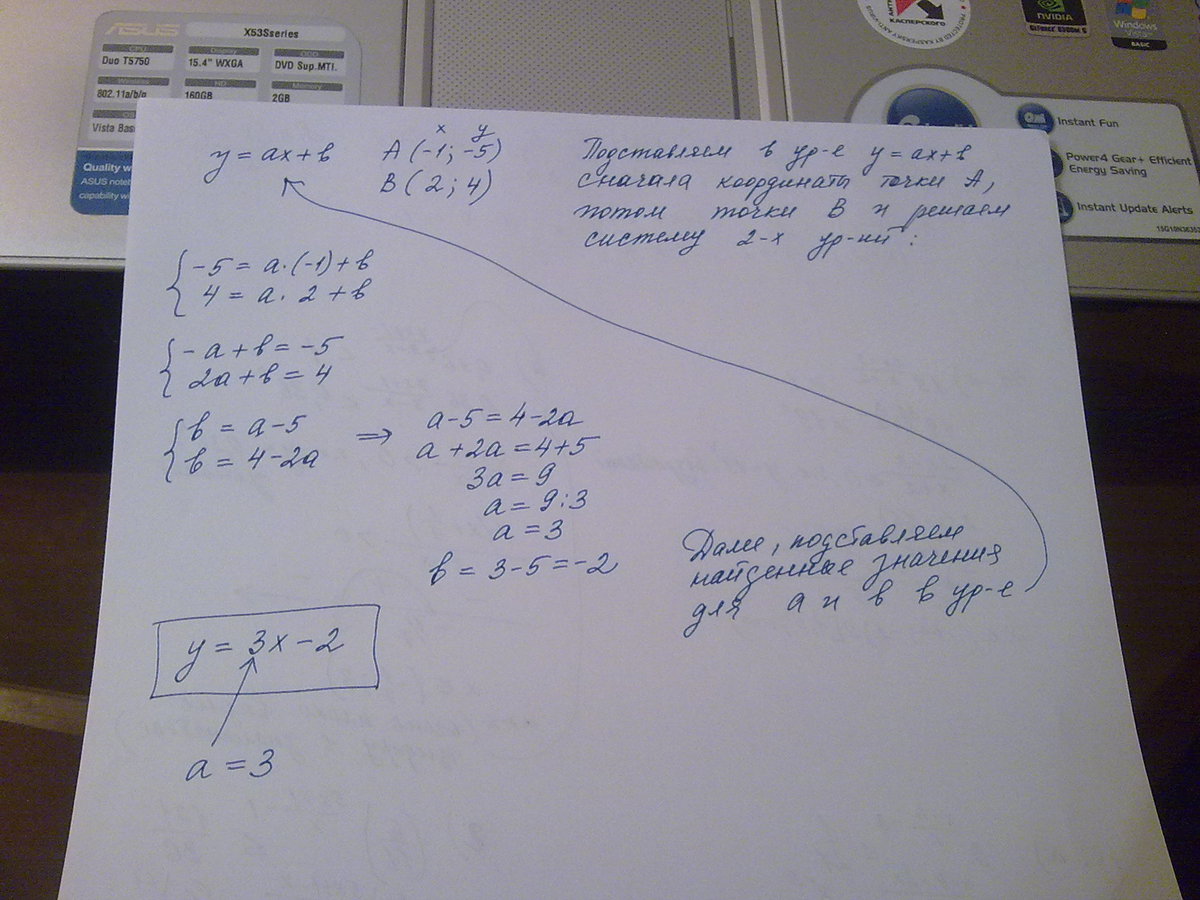 ASUS X53Sseries
CPU Display ODD
Duo T5750 15.4" WXGA DVD Sup.MTI.
Wireless HD Memory
802.11a/b/g 160GB 2GB
Vista Bas
Quality w
ASUS noteb
capability wi
КАСПЕРСКОГО
PROTECTED BY KASPERSKY ANTI-VIRUS
NVIDIA
GEFORCE
Windows
Vista
BASIC
Instant Fun
Power4 Gear+ Efficient
Energy Saving
Instant Update Alerts
x y
y = ax + в A (-1; -5)
B (2; 4)
Подставляем в ур-е y = ax + в
сначала координаты точки А,
потом точки В и решаем
систему 2-х ур-ний:
{ -5 = a·(-1) + в
4 = a · 2 + в
{ -a + в = -5
2a + в = 4
{ в = a - 5
в = 4 - 2a
⇒ a - 5 = 4 - 2a
a + 2a = 4 + 5
3a = 9
a = 9 : 3
a = 3
в = 3 - 5 = -2
Далее, подставляем
найденные значения
для а и в в ур-е
y = 3x - 2
a = 3